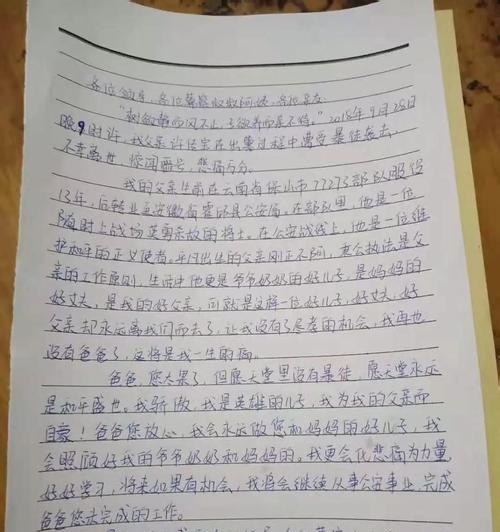 各位领导、各位尊敬的叔叔阿姨、各位亲友:
"树欲静而风不止,子欲养而亲不待。"2018年9月28日
晚9时许,我父亲许传宗在出警过程中遭受暴徒袭击,
不幸离世,惊闻噩号,悲痛万分。
我的父亲生前在云南省保山市77273部队服役
13年,后转业至安徽省霍邱县公安局。在部队里,他是一位
随时上战场英勇杀敌的将士。在公安战线上,他是一位维
护和平的正义使者。平凡出生的父亲刚正不阿,秉公执法是父
亲的工作原则,生活中他更是爷爷奶奶的好儿子,是妈妈的
好丈夫,是我的好父亲,可就是这样一位好儿子,好丈夫,好
父亲却永远离我们而去了,让我没有了尽孝的机会,我再也
没有爸爸了,这将是我一生的痛。
爸爸,您太累了,但愿天堂里没有暴徒,愿天堂永远
是和平盛世。我骄傲,我是英雄的儿子,我为我的父亲而
自豪!爸爸您放心,我会永远做您和妈妈的好儿子,我
会照顾好我的爷爷奶奶和妈妈的。我更会化悲痛为力量,
好好学习,将来如果有机会,我将会继续从事公安事业,完成
爸爸您未完成的工作。